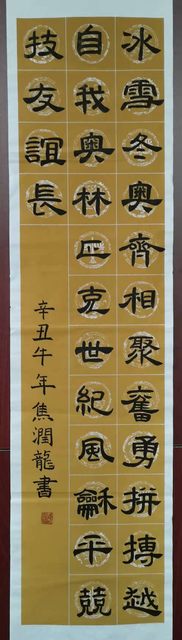 冰雪冬奧齊相聚奮勇拼搏越
自我奧林匹克世紀風龢平競
技友誼長
辛丑牛年焦潤龍書